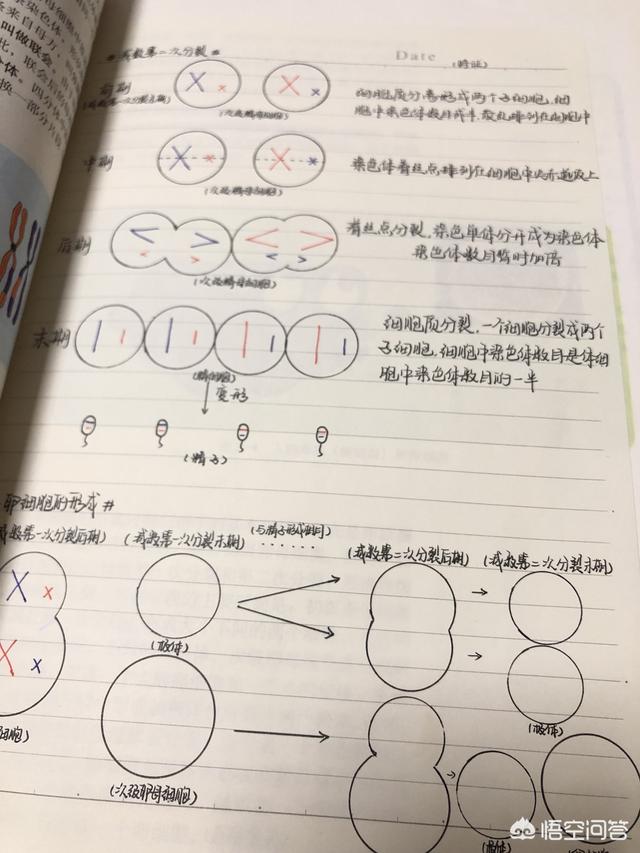 减数第二次分裂
Date
(特征)
前期
(减数第一次分裂末期)
(次级精母细胞)
细胞质分裂形成两个子细胞,细
胞中染色体数目减半,散乱排列在细胞中
中期
(次级精母细胞)
染色体着丝点排列在细胞中央赤道板上
后期
(次级精母细胞)
着丝点分裂,染色单体分开成为染色体
染色体数目暂时加倍
末期
(精细胞)
细胞质分裂,一个细胞分裂成两个
子细胞,细胞中染色体数目是体细
胞中染色体数目的一半
变形
(精子)
卵细胞的形成#
减数第一次分裂后期)
(减数第一次分裂末期)
(与精子形成相同)
......
(减数第二次分裂后期)
(减数第二次分裂末期)
(极体)
(极体)
细胞)
(次级卵母细胞)
(极体)
悟空问答